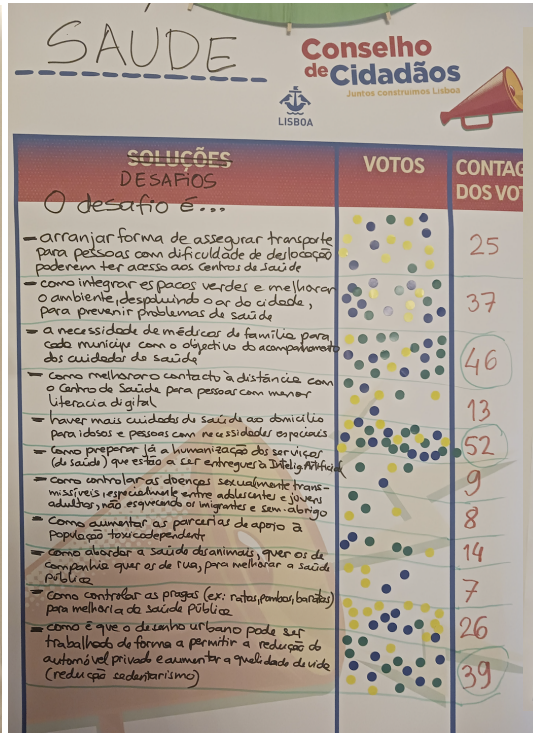 SAÚDE
Conselho
de Cidadãos
Juntos construímos Lisboa
LISBOA
SOLUÇÕES
DESAFIOS
VOTOS
CONTAG
DOS VOT
O desafio é...
- arranjar forma de assegurar transporte
para pessoas com dificuldade de deslocação
poderem ter acesso aos Centros de Saúde
25
- como integrar espaços verdes e melhorar
o ambiente, despoluindo o ar da cidade,
para prevenir problemas de saúde
37
- a necessidade de médicos de família para
cada munícipe com o objectivo do acompanhamento
dos cuidados de saúde
46
- como melhorar o contacto à distância com
o Centro de Saúde para pessoas com menor
literacia digital
13
- haver mais cuidados de saúde ao domicílio
para idosos e pessoas com necessidades especiais
52
- como preparar já a humanização dos serviços
(de saúde) que estão a ser entregues à Inteligª Artificial
9
- como controlar as doenças sexualmente trans-
missíveis, especialmente entre adolescentes e jovens
adultos, não esquecendo os imigrantes e sem-abrigo
8
- como aumentar as parcerias de apoio à
população toxicodependent
14
- como abordar a saúde dos animais, quer os de
companhia quer os de rua, para melhorar a saúde
pública
7
- como controlar as pragas (ex: ratos, pombos, baratas)
para melhoria da saúde Pública
26
- como é que o desenho urbano pode ser
trabalhado de forma a permitir a redução do
automóvel privado e aumentar a qualidade de vida
(redução sedentarismo)
39